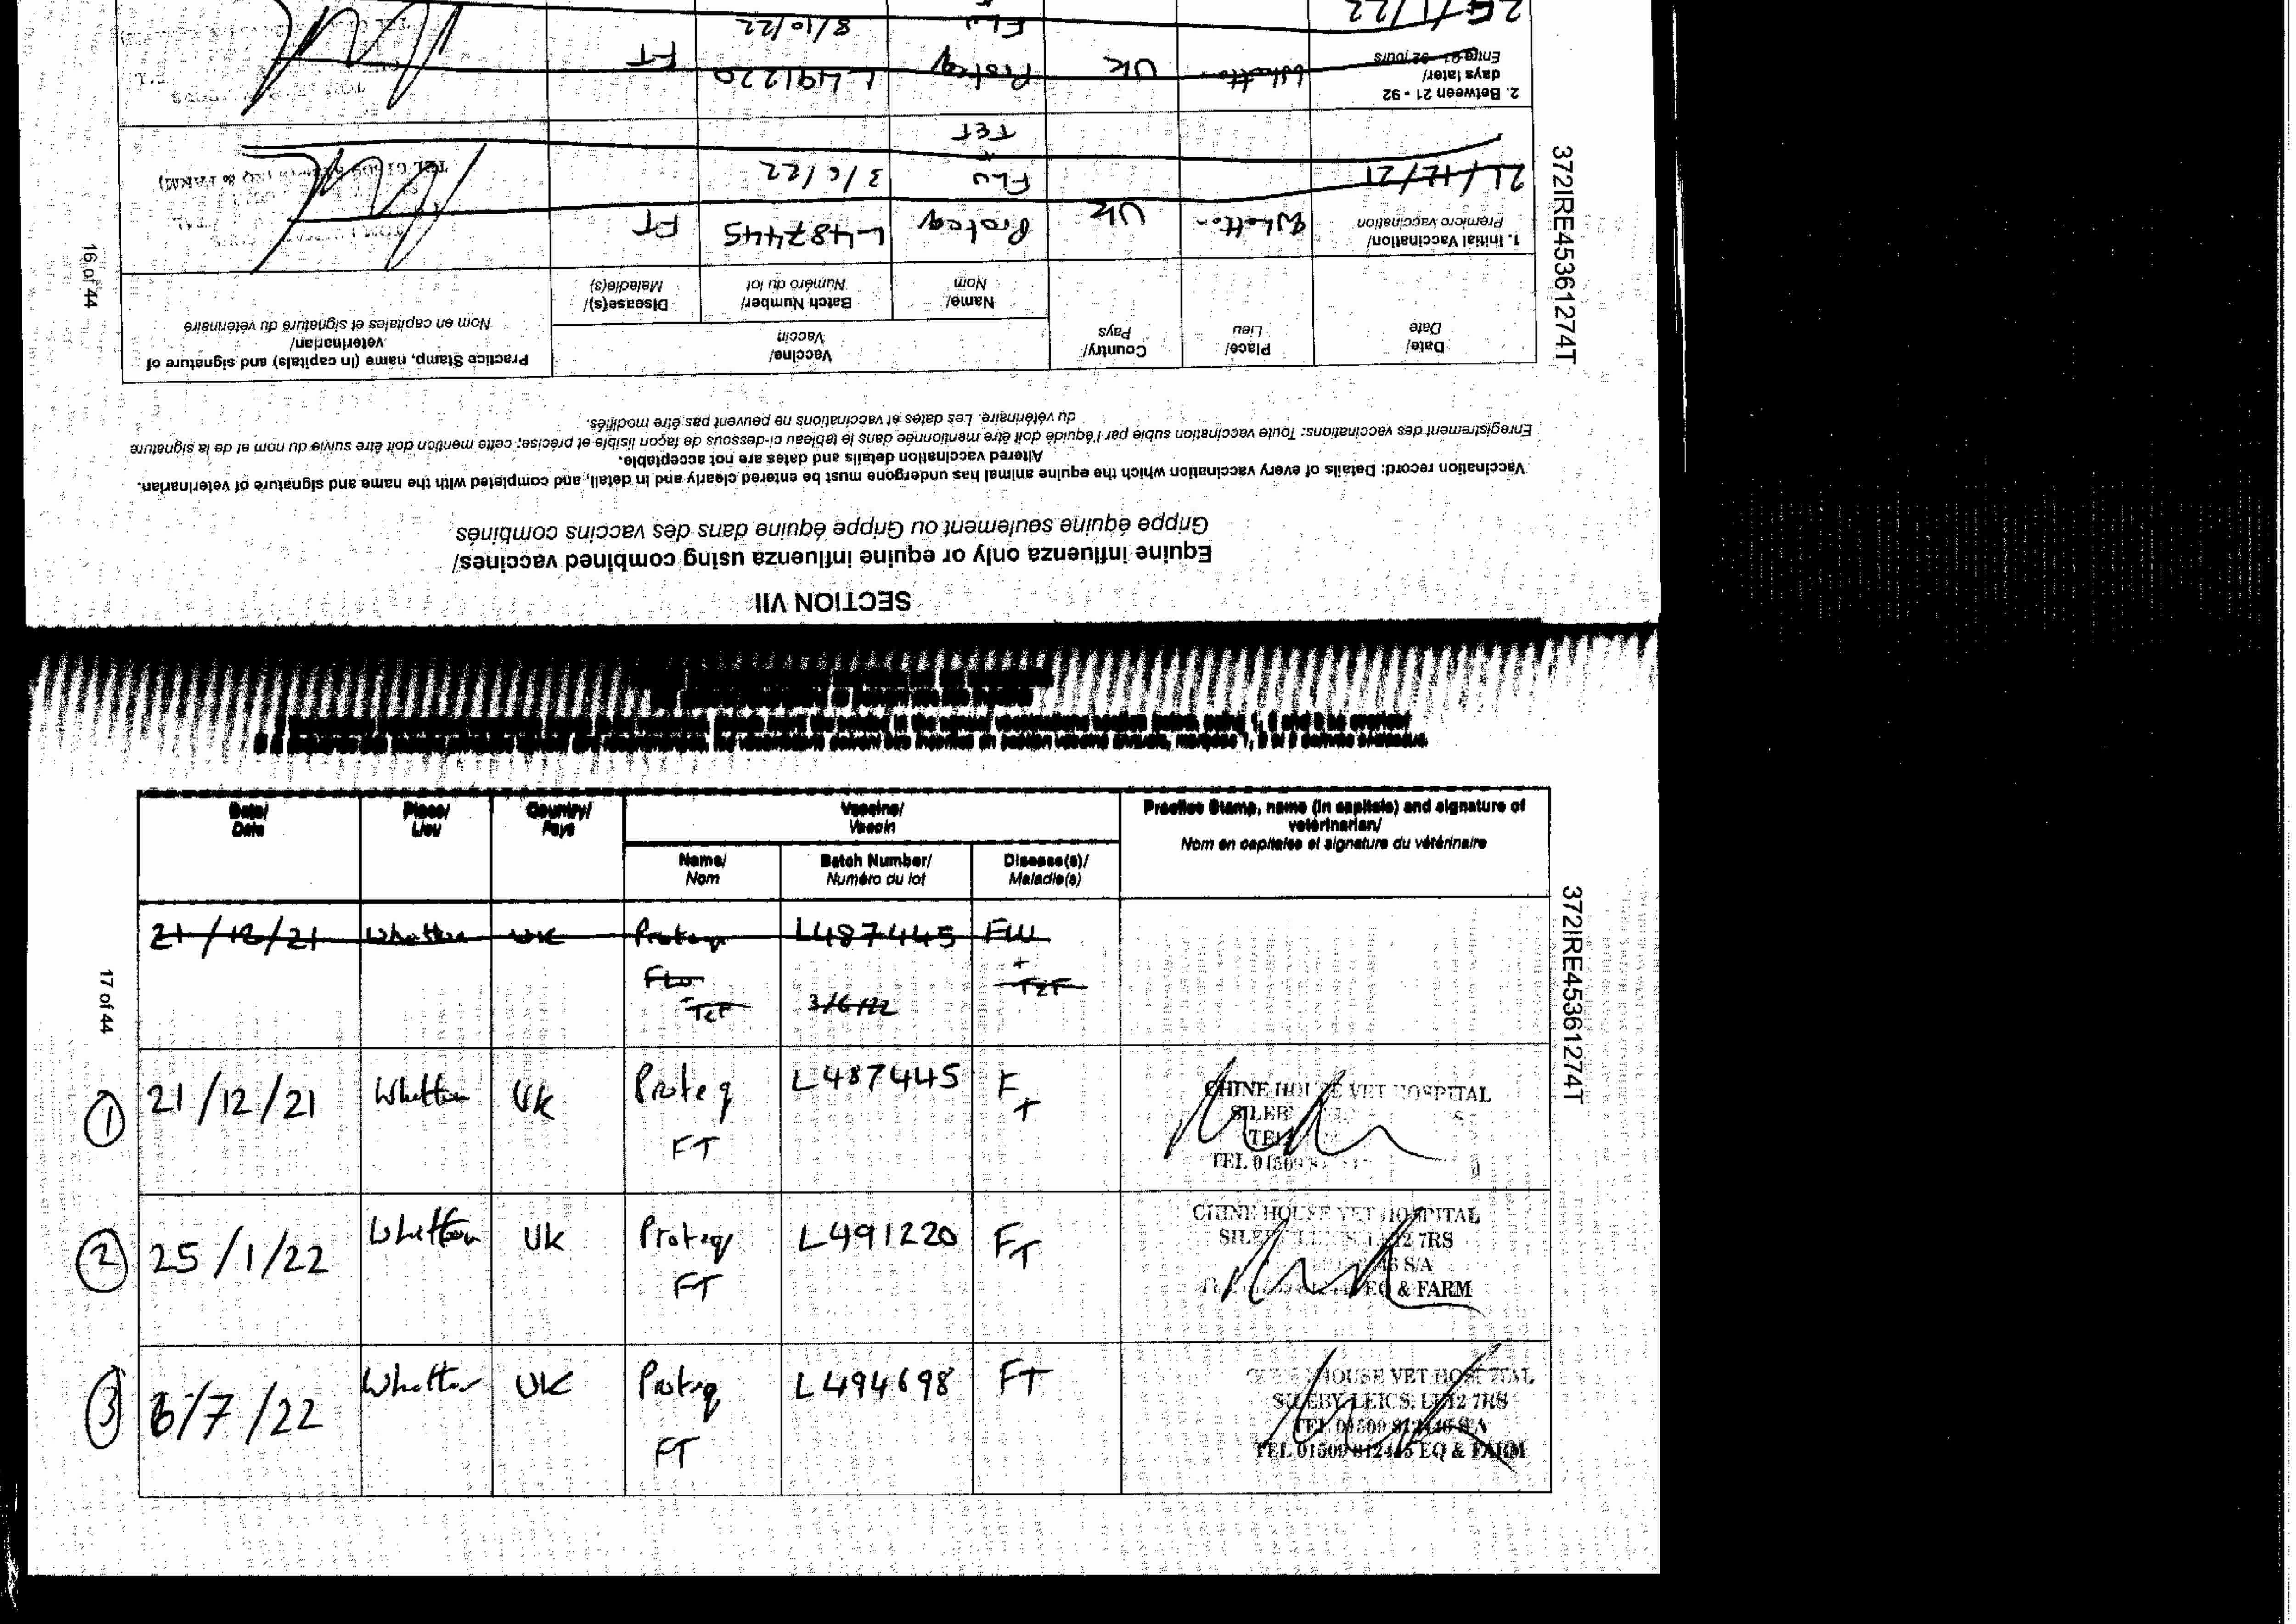 SECTION VII
Equine influenza only or equine influenza using combined vaccines/
Grippe équine seulement ou Grippe équine dans des vaccins combinés
Vaccination record: Details of every vaccination which the equine animal has undergone must be entered clearly and in detail, and completed with the name and signature of veterinarian.
Altered vaccination details and dates are not acceptable.
Enregistrement des vaccinations: Toute vaccination subie par l'équidé doit être mentionnée dans le tableau ci-dessous de façon lisible et précise; cette mention doit être suivie du nom et de la signature
du vétérinaire. Les dates et vaccinations ne peuvent pas être modifiés.
Date/
Date
Place/
Lieu
Country/
Pays
Vaccine/
Vaccin
Practice Stamp, name (in capitals) and signature of
veterinarian/
Nom en capitales et signature du vétérinaire
Name/
Nom
Batch Number/
Numéro du lot
Disease(s)/
Maladie(s)
1. Initial Vaccination/
Premiere vaccination
21/12/21
Whatton
UK
Proteq
FLU
+
TET
L487445
3/6/22
FT
2. Between 21 - 92
days later/
Entre 21 - 92 jours
25/1/22
Whatton
UK
Proteq
FLU
L491220
8/10/22
FT
16 of 44
372IRE45361274T
Date/
Date
Place/
Lieu
Country/
Pays
Vaccine/
Vaccin
Practice Stamp, name (in capitals) and signature of
veterinarian/
Nom en capitales et signature du vétérinaire
Name/
Nom
Batch Number/
Numéro du lot
Disease(s)/
Maladie(s)
21/12/21 Whatton UK Proteq L487445 FLU
FLU +
TET 3/6/22 TET
1 21/12/21 Whatton UK Proteq L487445 F
FT +
CHINE HOUSE VET HOSPITAL
TEL 01509
2 25/1/22 Whatton UK Proteq L491220 FT
FT
CHINE HOUSE VET HOSPITAL
7RS
S/A
EQ & FARM
3 6/7/22 Whatton UK Proteq L494698 FT
FT
HOUSE VET HOSPITAL
SILEBY, LEICS. LE12 7RS
TEL 01509 812446 S/A
TEL 01509 812445 EQ & FARM
17 of 44
372IRE45361274T